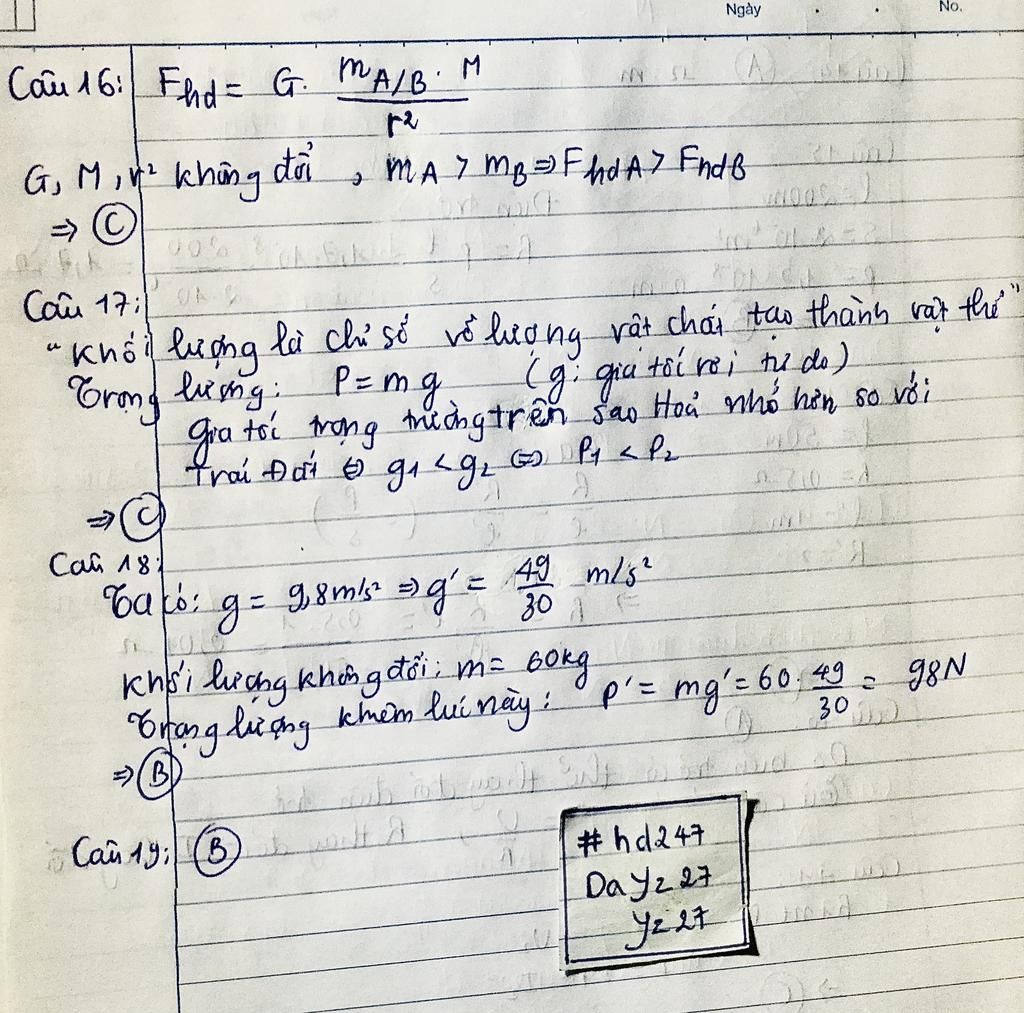 Ngày . . No.
Câu 16: F_hd = G. m_A/B . M / r²
G, M, r² không đổi, m_A > m_B ⇒ F_hdA > F_hdB
⇒ C
Câu 17:
"Khối lượng là chỉ số về lượng vật chất tạo thành vật thể"
Trọng lượng: P = mg (g: gia tốc rơi tự do)
gia tốc trọng trường trên sao Hoả nhỏ hơn so với
Trái Đất ⇔ g₁ < g₂ ⇔ P₁ < P₂
⇒ C
Câu 18:
Ta có: g = 9,8m/s² ⇒ g' = 49/30 m/s²
Khối lượng không đổi: m = 60kg
Trọng lượng khiêm lúc này: P' = mg' = 60. 49/30 = 98N
⇒ B
Câu 19: B
#hd247
DaYz27
Yz27